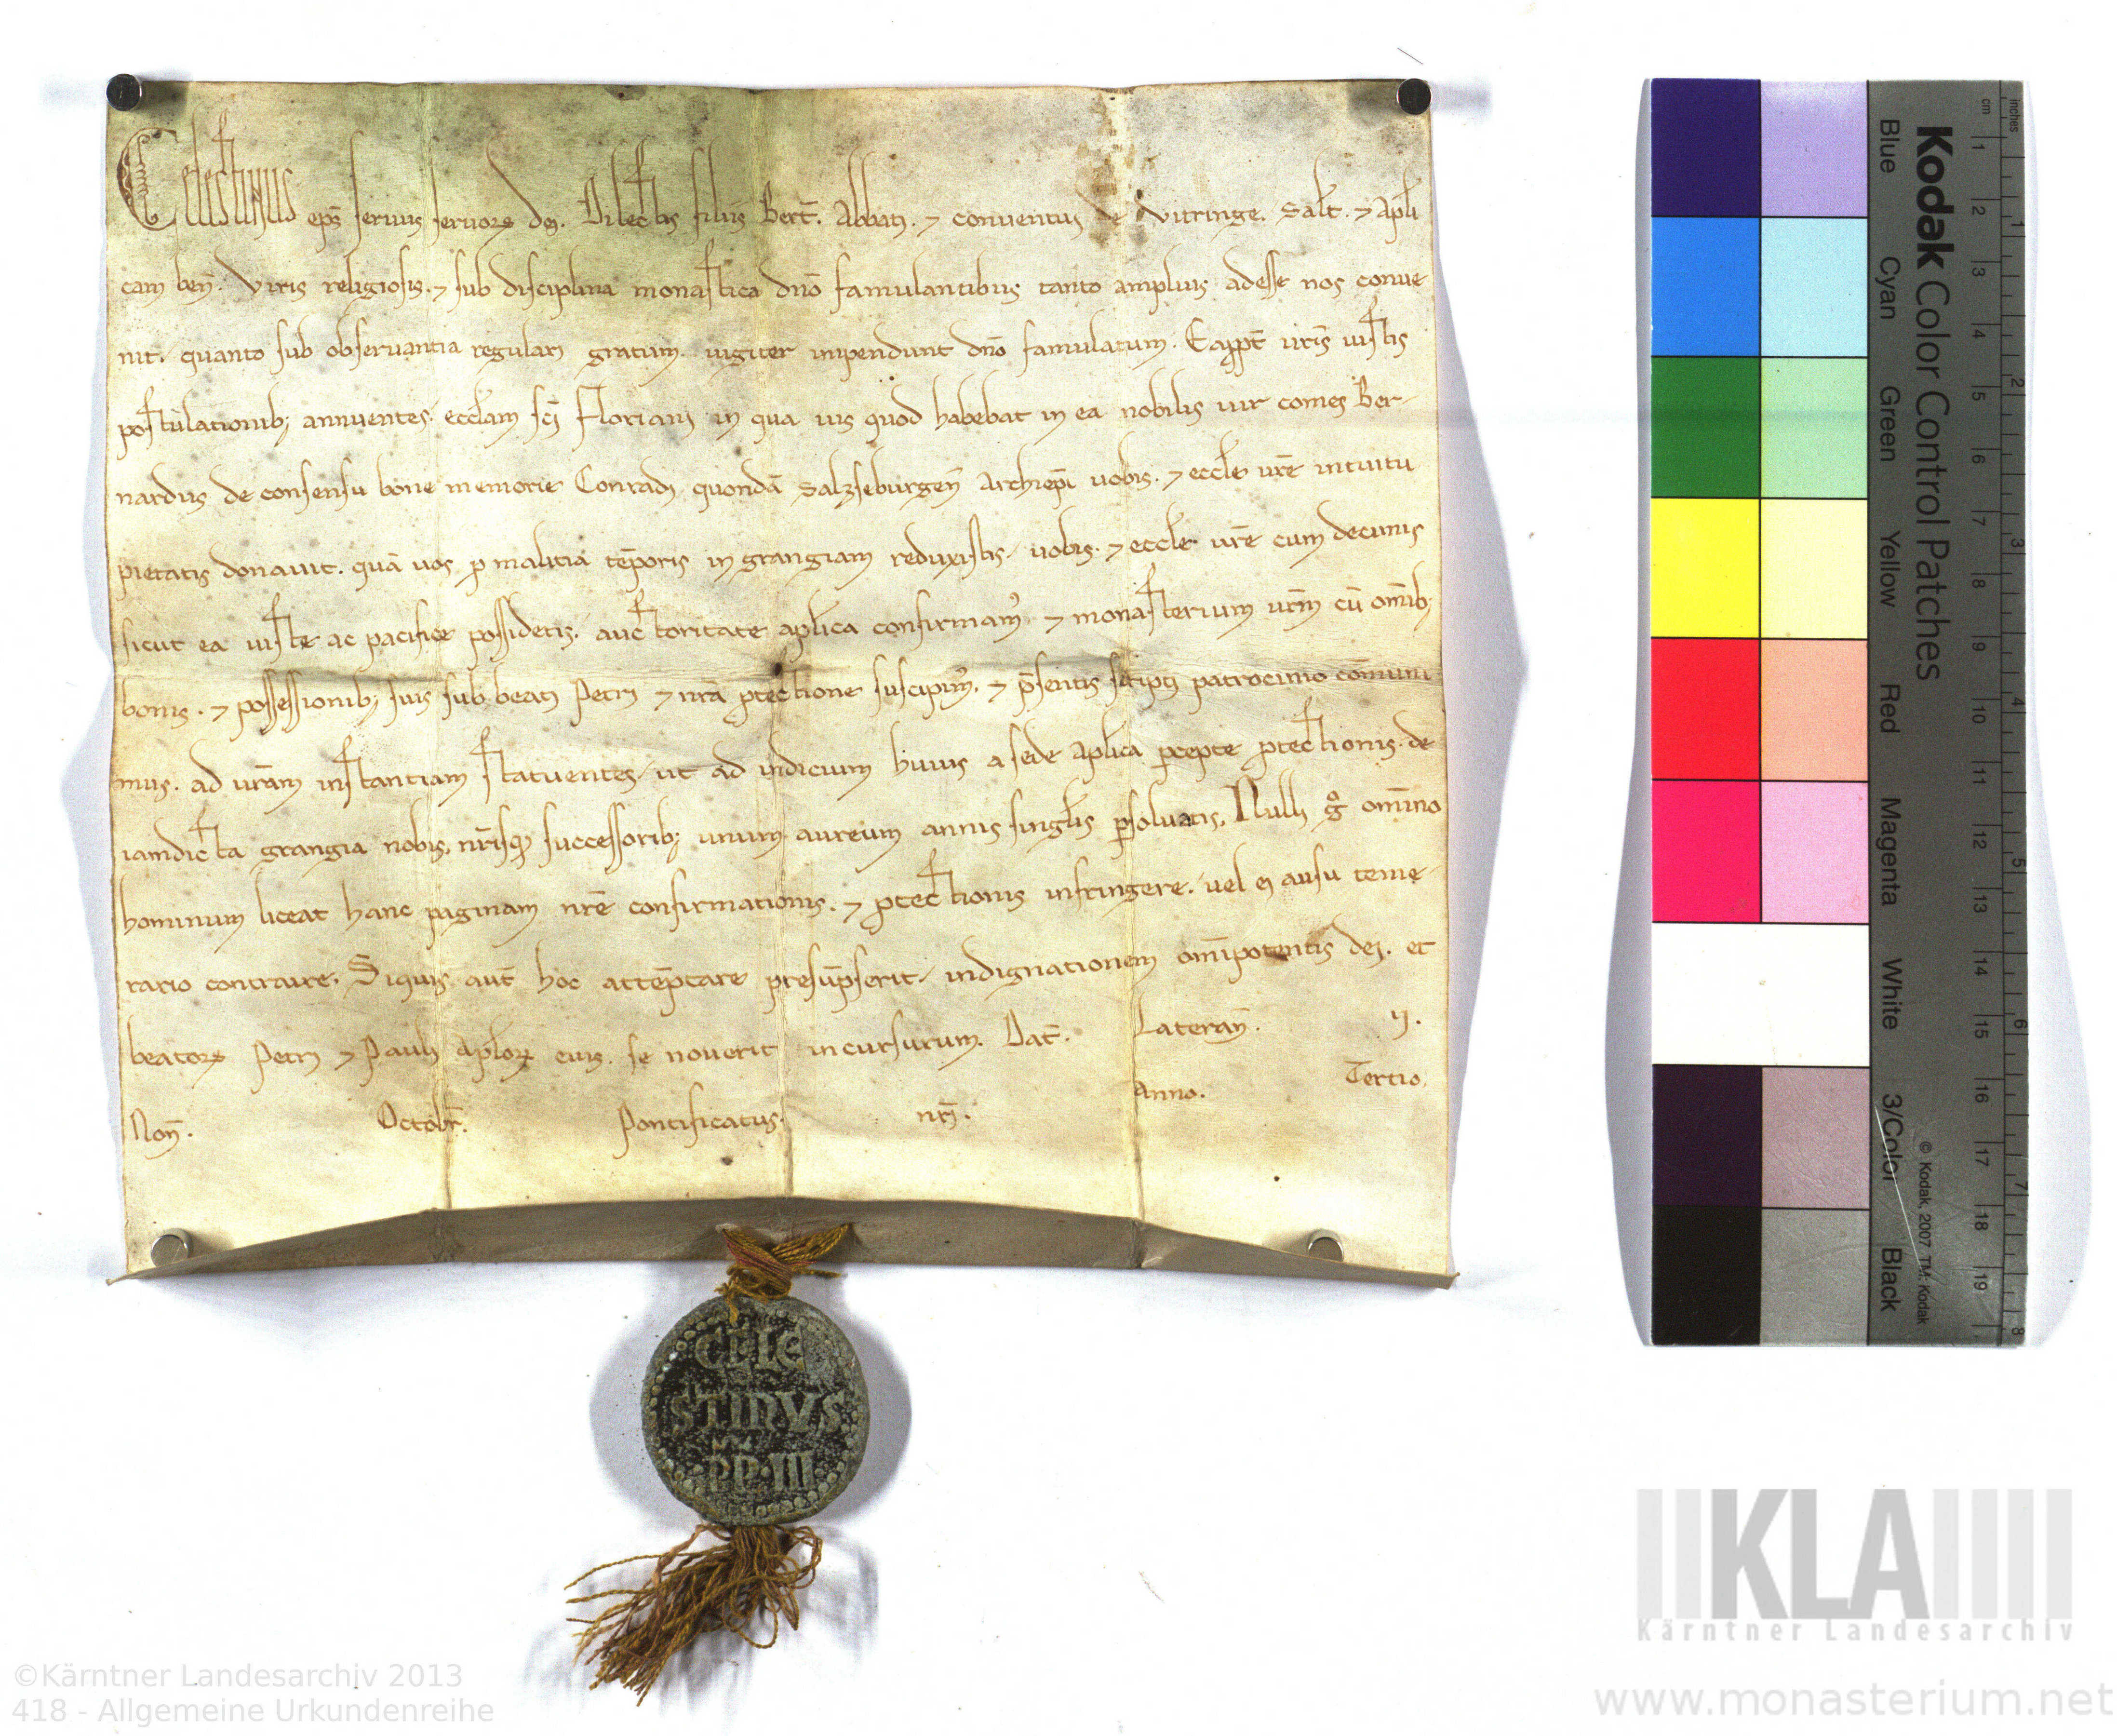 Celestinus ep̄s seruus seruoꝝ dei. Dilectis filiis Bert̄. Abbati. ⁊ conuentui de Vitringe. Salt̄. ⁊ apl̄i
cam ben̄. Viris religiosis. ⁊ sub disciplina monastica dn̄o famulantibus tanto amplius adesse nos conue
nit. quanto sub obseruantia regulari gratum. iugiter inpendunt dn̄o famulatum. Eapp̄t ur̄is iustis
postulationib; annuentes. eccl̄am sc̄i Floriani in qua ius quod habebat in ea nobilis uir comes Ber-
nardus de consensu bone memorie Conradi quondā Salzseburgen̄ Archiep̄i uobis. ⁊ eccl̄e ur̄e intuitu
pietatis donauit. quā uos ꝑ malitiā tēporis in grangiam reduxistis. uobis. ⁊ eccl̄e ur̄e cum decimis
sicut ea iuste ac pacifice possidetis. auctoritate apl̄ica confirmam᷒ ⁊ monasterium ur̄m cū om̄ib;
bonis. ⁊ possessionib; suis sub beati Petri ⁊ nr̄a ꝓtectione suscipim᷒. ⁊ p̄sentis sc̄ipti patrocinio cōmuni
mus. ad ur̄am instantiam statuentes. ut ad indicium huius a sede apl̄ica ꝑcepte ꝓtectionis. de
iamdicta grangia nobis. nr̄isq; successorib; unum aureum annis singl̄is ꝑsoluatis. Nulli gͦ om̄ino
hominum liceat hanc paginam nr̄e confirmationis. ⁊ ꝓtectionis infringere. uel ei ausu teme-
rario contraire. Siquis aut̄ hoc attēptare presūpserit. indignationem om̄ipotentis dei. et
beatoꝝ Petri ⁊ Pauli apl̄oꝝ eius. se nouerit incursurum. Dat̄. Lateran̄. ii.
Non̄. Octobr̄. Pontificatus. nr̄i. Anno. Tertio.
CELE
STINVS
PP·III
Kodak Color Control Patches
Blue Cyan Green Yellow Red Magenta White 3/Color Black
© Kodak, 2007 TM: Kodak
cm 1 2 3 4 5 6 7 8 9 10 11 12 13 14 15 16 17 18 19
inches 1 2 3 4 5 6 7 8
KLA
Kärntner Landesarchiv
©Kärntner Landesarchiv 2013
418 - Allgemeine Urkundenreihe
www.monasterium.net